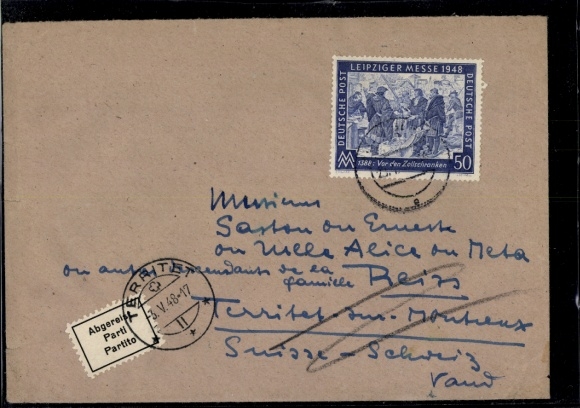 LEIPZIGER MESSE 1948
DEUTSCHE POST
DEUTSCHE POST
1388: Vor den Zollschranken
50
Messieurs
Gaston ou Erneste
ou Melle Alice ou Meta
ou autres descendants de la
famille Reiss
Territet-sur-Montreux
Suisse - Schweiz
Vaud
TERRITET
3.V.48-17
Abgereist
Parti
Partito